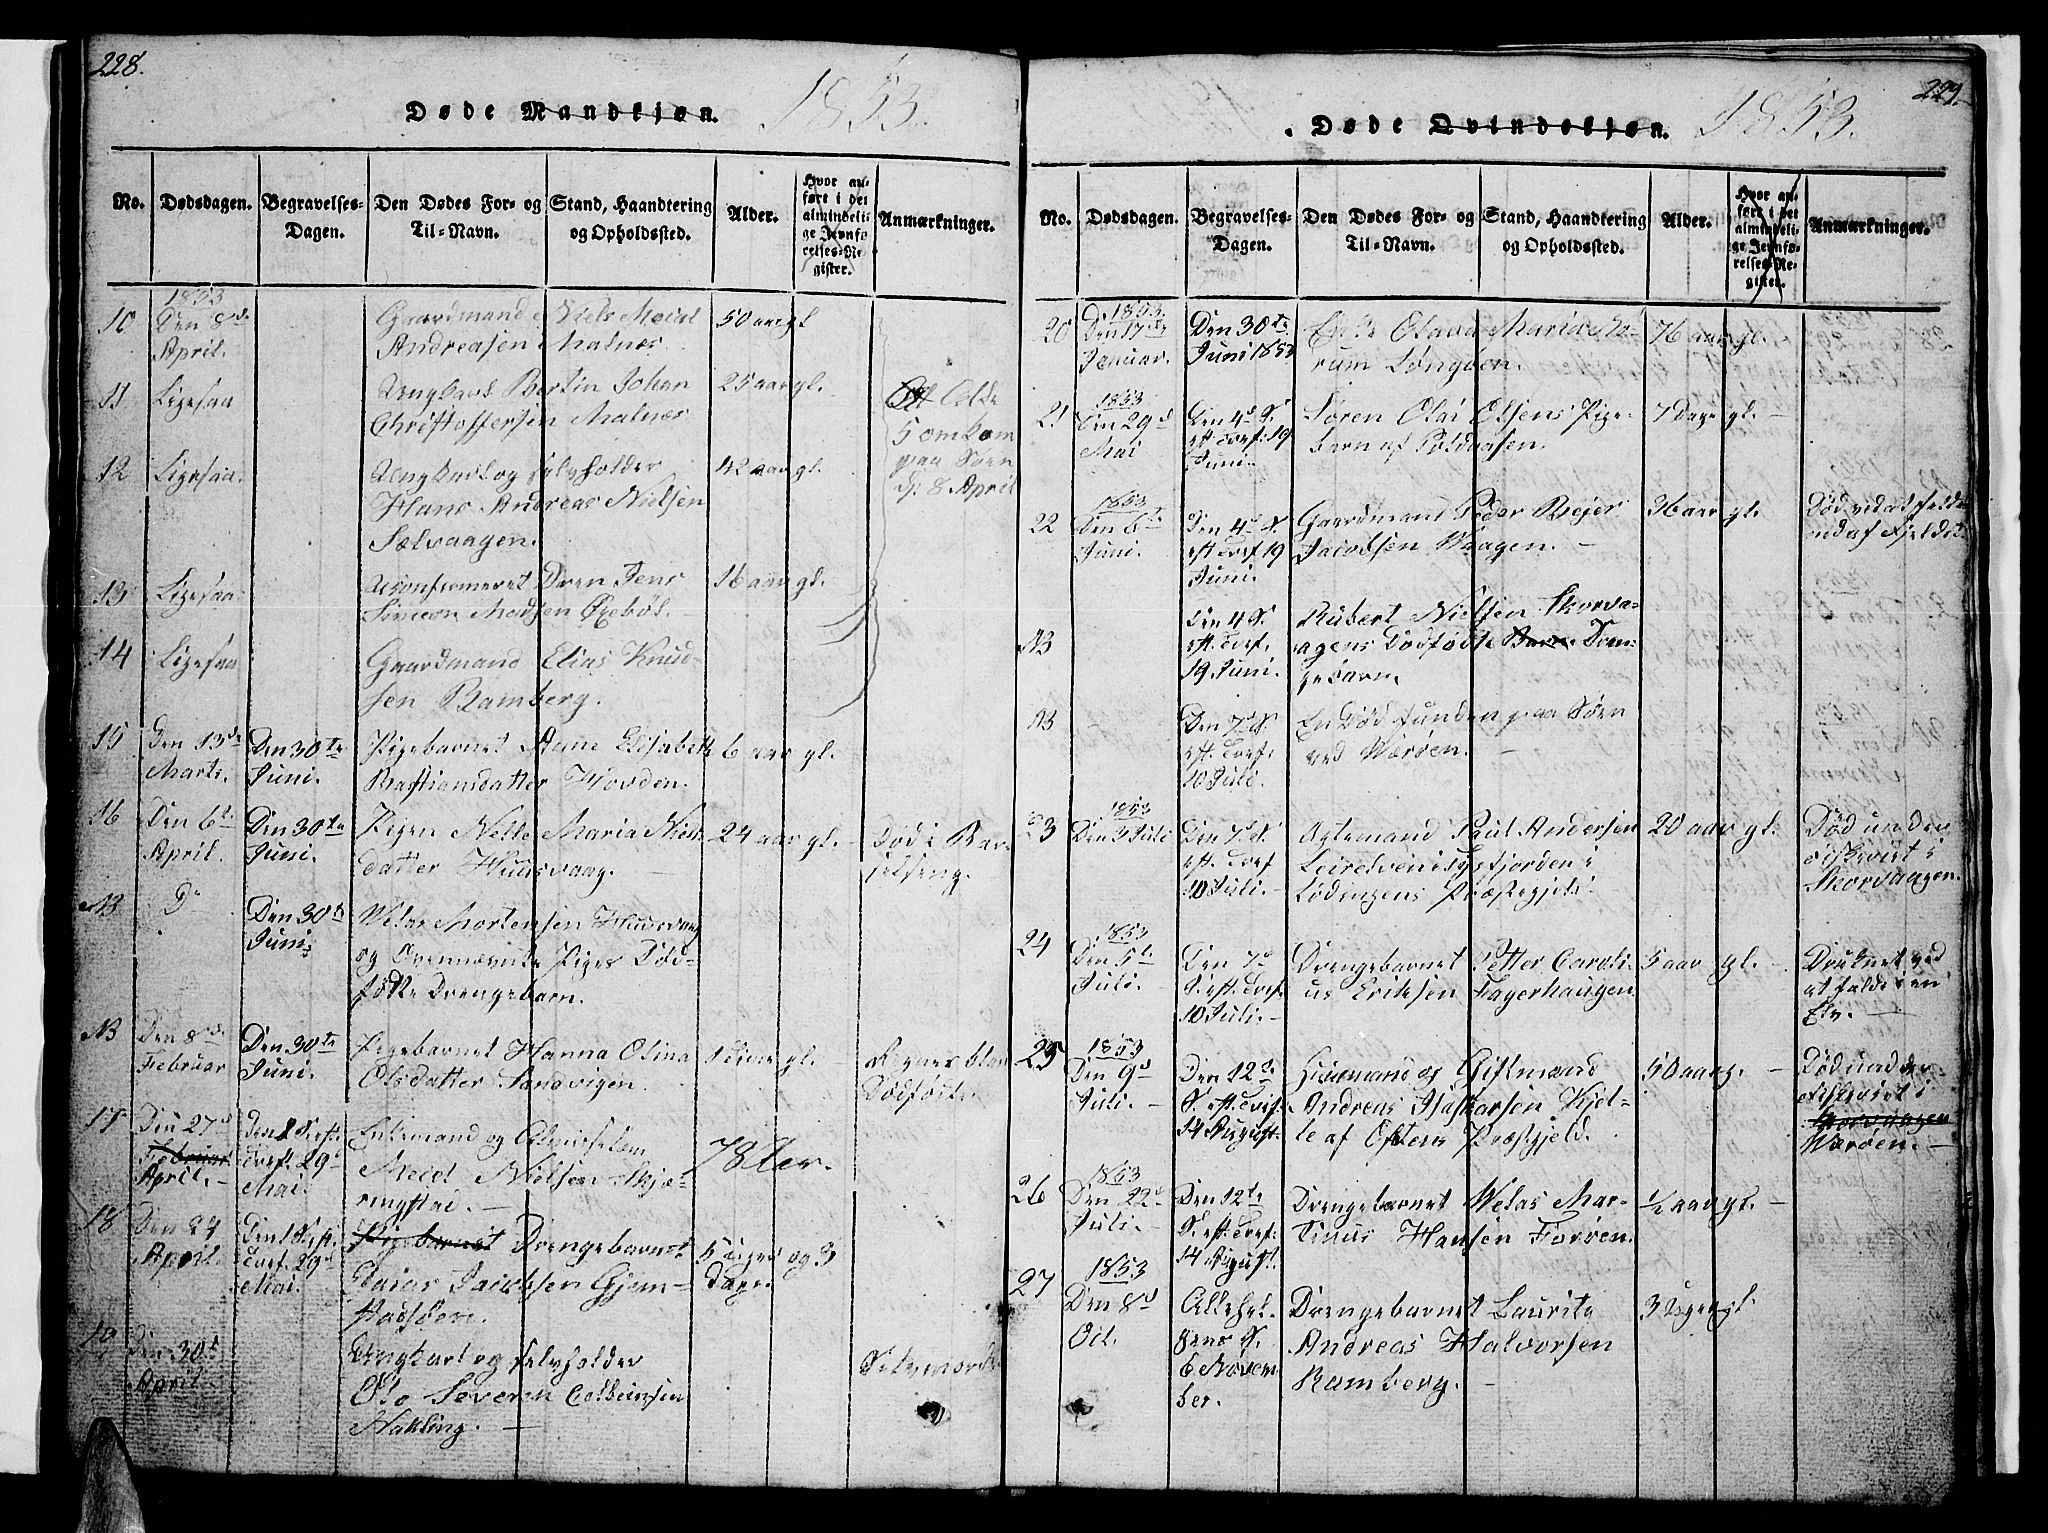 228.
Døde Mandkjøn. 1853.
No.
Dødsdagen.
Begravelses-
Dagen.
Den Dødes For- og
Til-Navn.
Stand, Haandtering
og Opholdssted.
Alder.
Hvor an-
ført i det
almindeli-
ge Jevnfø-
relses-Re-
gister.
Anmærkninger.
10
1853
Den 8de
April.
Gaardmand Niels
Andreasen Malnæs
50 aar gl
11
Ligesaa
Ungkarl Bertin Johan
Christoffersen Malnæs
25 aar gl.
Alle
5 omkom
paa Søen
d: 8 April
12
Ligesaa.
Ungkarl og selvholder
Hans Andreas Nielsen
Sælvaagen.
42 aar gl.
13
Ligesaa
Uconfirmeret Dren Jens
Simeon Madsen Øxebøl.
16 aar gl.
14
Ligesaa
Gaardmand Elias Knud-
sen Ramberg.
15
Den 13de
Marts.
Den 30te
Juni.
Pigebarnet Anne Elisabeth
Bastiansdatter Hovden.
6 aar gl.
16
Den 6te
April.
Den 30te
Juni.
Pigen Nelle Maria Niels-
datter Huusvaag.
24 aar gl. -
Død i Bar-
selseng.
NB
Do
Den 30te
Juni
Velas Mortensen Huusvaag
og Ovennævnte Piges Død-
fødte Drengebarn.
NB
Den 8de
Februar
Den 30te
Juni.
Pigebarnet Hanna Olina
Olsdatter Sandvigen.
1 time gl.
Dødfødte
17
Den 27de
Februar
April. -
29de
Mai.
Enkemand og
Nielsen Skjæ-
ringstad. -
78 Aar.
18
Den 24
April.
29de
Mai.
Pigebarnet Drengebarnet
Elaias Jacobsen Gjem-
5 Uger og 3
dage.
19
Den 30te
April.
Ungkarl og selvholder
Ole Severin
Nykling. -
Selvmorder
229.
Døde Qvindekjøn. 1853.
No.
Dødsdagen.
Begravelses-
Dagen.
Den Dødes For- og
Til-Navn.
Stand, Haandtering
og Opholdssted.
Alder.
Hvor an-
ført i det
almindeli-
ge Jevnfø-
relses-Re-
gister.
Anmærkninger.
20
1853.
Den 17de
Januar.
Den 30te
Juni 1853
Enke Olava Maria
Langøen.
76 aar gl.
21
1853
Den 29de
Mai
Den 4de S.
eft. Tref: 19
Juni. -
Søren Olai Olsens Pige-
barn af
7 Dage gl. -
22
1853
Den 6te
Juni.
Den 4de S.
eft Tref 19
Juni.
Gaardmand Peder Bejer
Jacobsen Vaagen. -
36 aar gl.
Død ved at falde
ned af Fjeldet.
NB
Den 4 S.
eft. Tref.
19 Juni.
Rubert Nielsen Skorva-
agens Dødfødte Barn Dren-
gebarn.
NB
Den 7de S.
eft. Tref:
10 Juli.
En Død funden paa Søen
ved Værøen. -
23
1853
Den 3 Juli
Den 7de S.
eft. Tref
10 Juli. -
Ægtemand Paul Andersen
Leirelven i Øxfjorden i
Lødingens Præstegjeld.
20 aar gl.
Død under
Fiskeriet i
Skorvaagen.
24
1853
Den 5te
Juli.
Den 7de
S. eft. Tref.
10 Juli. -
Drengebarnet Petter Caroli-
us Eriksen Fagerhaugen.
5 aar gl. -
Druknet ved
at falde i en
Elv. -
25
1853
Den 9de
Juli. -
Den 12te
S. eft. Tref.
14 August.
Huusmand og Giftmand
Andreas Isaksen Kjel-
le af Ofotens Præstgjeld.
50 aar g. -
Død under
Fiskeriet i
Skorvaagen
Værøen. -
26
1853
Den 22de
Juli. -
Den 12te
S. eft. Tref:
14 August.
Drengebarnet Velas Mar-
tinus Hansen Forøen.
1/2 aar gl. -
27
1853
Den 8de
Oct.
Allehel-
gens S.
6 Novem-
ber.
Drengebarnet Laurits
Andreas Halvorsen
Ramberg. -
3 Uger gl.